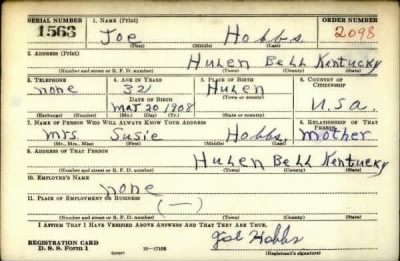 SERIAL NUMBER 1. NAME (Print) ORDER NUMBER
1563 Joe Hobbs 2098
(First) (Middle) (Last)
2. ADDRESS (Print)
Hulen Bell Kentucky
(Number and street or R. F. D. number) (Town) (County) (State)
3. TELEPHONE 4. AGE IN YEARS 5. PLACE OF BIRTH 6. COUNTRY OF CITIZENSHIP
none 32 Hulen
DATE OF BIRTH (Town or county)
Mar 20 1908 U.S.a.
(Exchange) (Number) (Mo.) (Day) (Yr.) (State or country)
7. NAME OF PERSON WHO WILL ALWAYS KNOW YOUR ADDRESS 8. RELATIONSHIP OF THAT PERSON
Mrs. Susie Hobbs, Mother
(Mr., Mrs., Miss) (First) (Middle) (Last)
9. ADDRESS OF THAT PERSON
Hulen Bell Kentucky
(Number and street or R. F. D. number) (Town) (County) (State)
10. EMPLOYER'S NAME
none
11. PLACE OF EMPLOYMENT OR BUSINESS
(—)
(Number and street or R. F. D. number) (Town) (County) (State)
I AFFIRM THAT I HAVE VERIFIED ABOVE ANSWERS AND THAT THEY ARE TRUE.
REGISTRATION CARD
D. S. S. Form 1 (over) 16—17105 Joe Hobbs
(Registrant's signature)